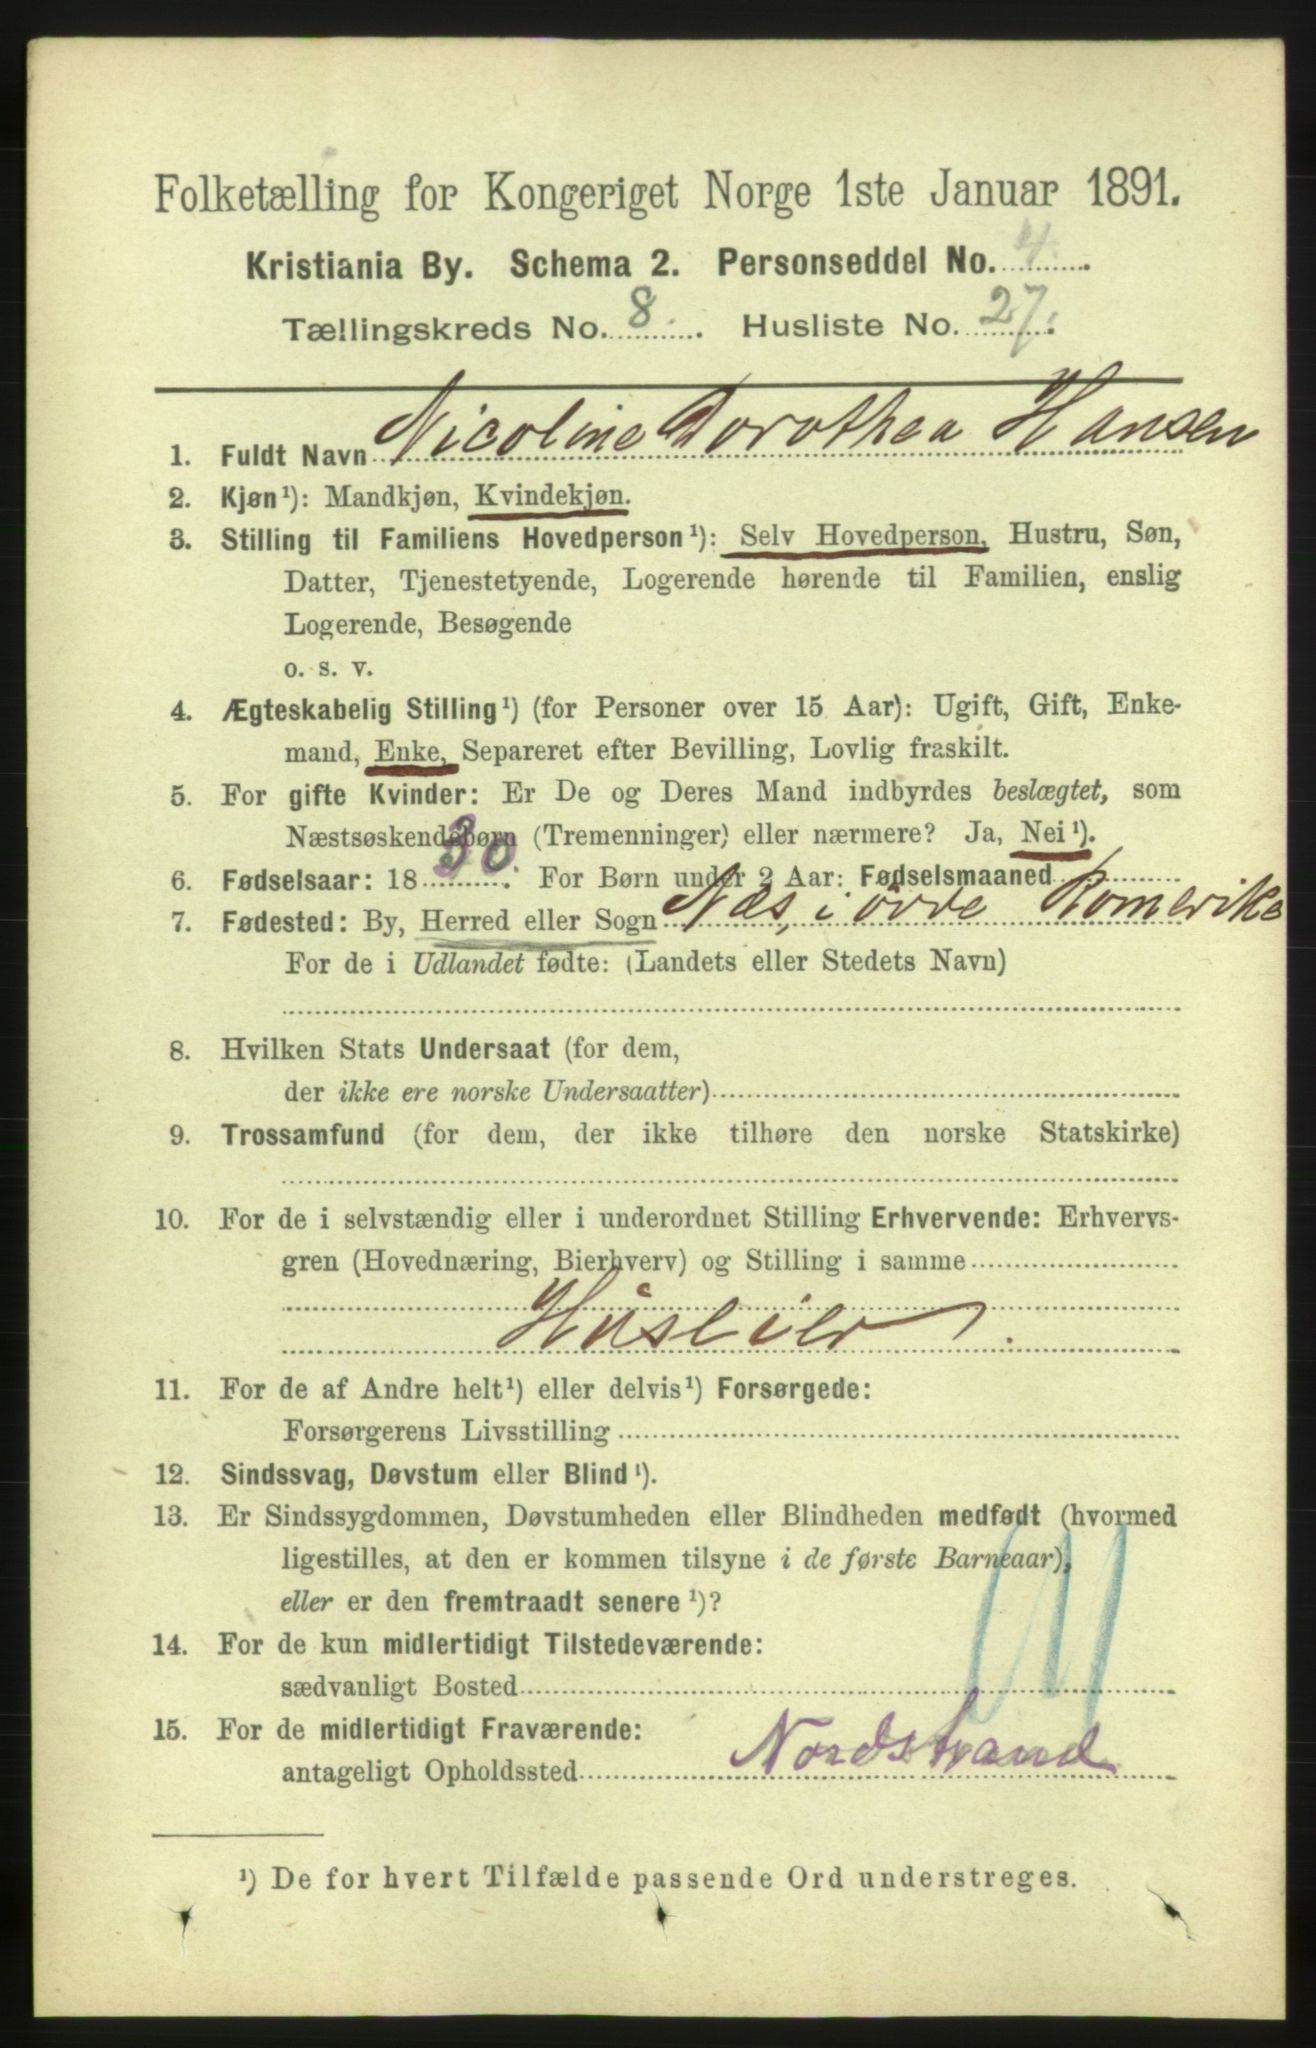 Folketælling for Kongeriget Norge 1ste Januar 1891.
Kristiania By. Schema 2. Personseddel No. 4.
Tællingskreds No. 8. Husliste No. 27.
1. Fuldt Navn Nicoline Dorothea Hansen
2. Kjøn¹): Mandkjøn, Kvindekjøn.
3. Stilling til Familiens Hovedperson¹): Selv Hovedperson, Hustru, Søn,
Datter, Tjenestetyende, Logerende hørende til Familien, enslig
Logerende, Besøgende
o. s. v.
4. Ægteskabelig Stilling¹) (for Personer over 15 Aar): Ugift, Gift, Enke-
mand, Enke, Separeret efter Bevilling, Lovlig fraskilt.
5. For gifte Kvinder: Er De og Deres Mand indbyrdes beslægtet, som
Næstsøskendebørn (Tremenninger) eller nærmere? Ja, Nei¹).
6. Fødselsaar: 1830. For Børn under 2 Aar: Fødselsmaaned
7. Fødested: By, Herred eller Sogn Næs, i øvre Romerike
For de i Udlandet fødte: (Landets eller Stedets Navn)
8. Hvilken Stats Undersaat (for dem,
der ikke ere norske Undersaatter)
9. Trossamfund (for dem, der ikke tilhøre den norske Statskirke)
10. For de i selvstændig eller i underordnet Stilling Erhvervende: Erhvervs-
gren (Hovednæring, Bierhverv) og Stilling i samme
Husleier.
11. For de af Andre helt¹) eller delvis¹) Forsørgede:
Forsørgerens Livsstilling
12. Sindssvag, Døvstum eller Blind¹).
13. Er Sindssygdommen, Døvstumheden eller Blindheden medfødt (hvormed
ligestilles, at den er kommen tilsyne i de første Barneaar),
eller er den fremtraadt senere¹)?
14. For de kun midlertidigt Tilstedeværende:
sædvanligt Bosted
15. For de midlertidigt Fraværende:
antageligt Opholdssted Nordstrand
¹) De for hvert Tilfælde passende Ord understreges.